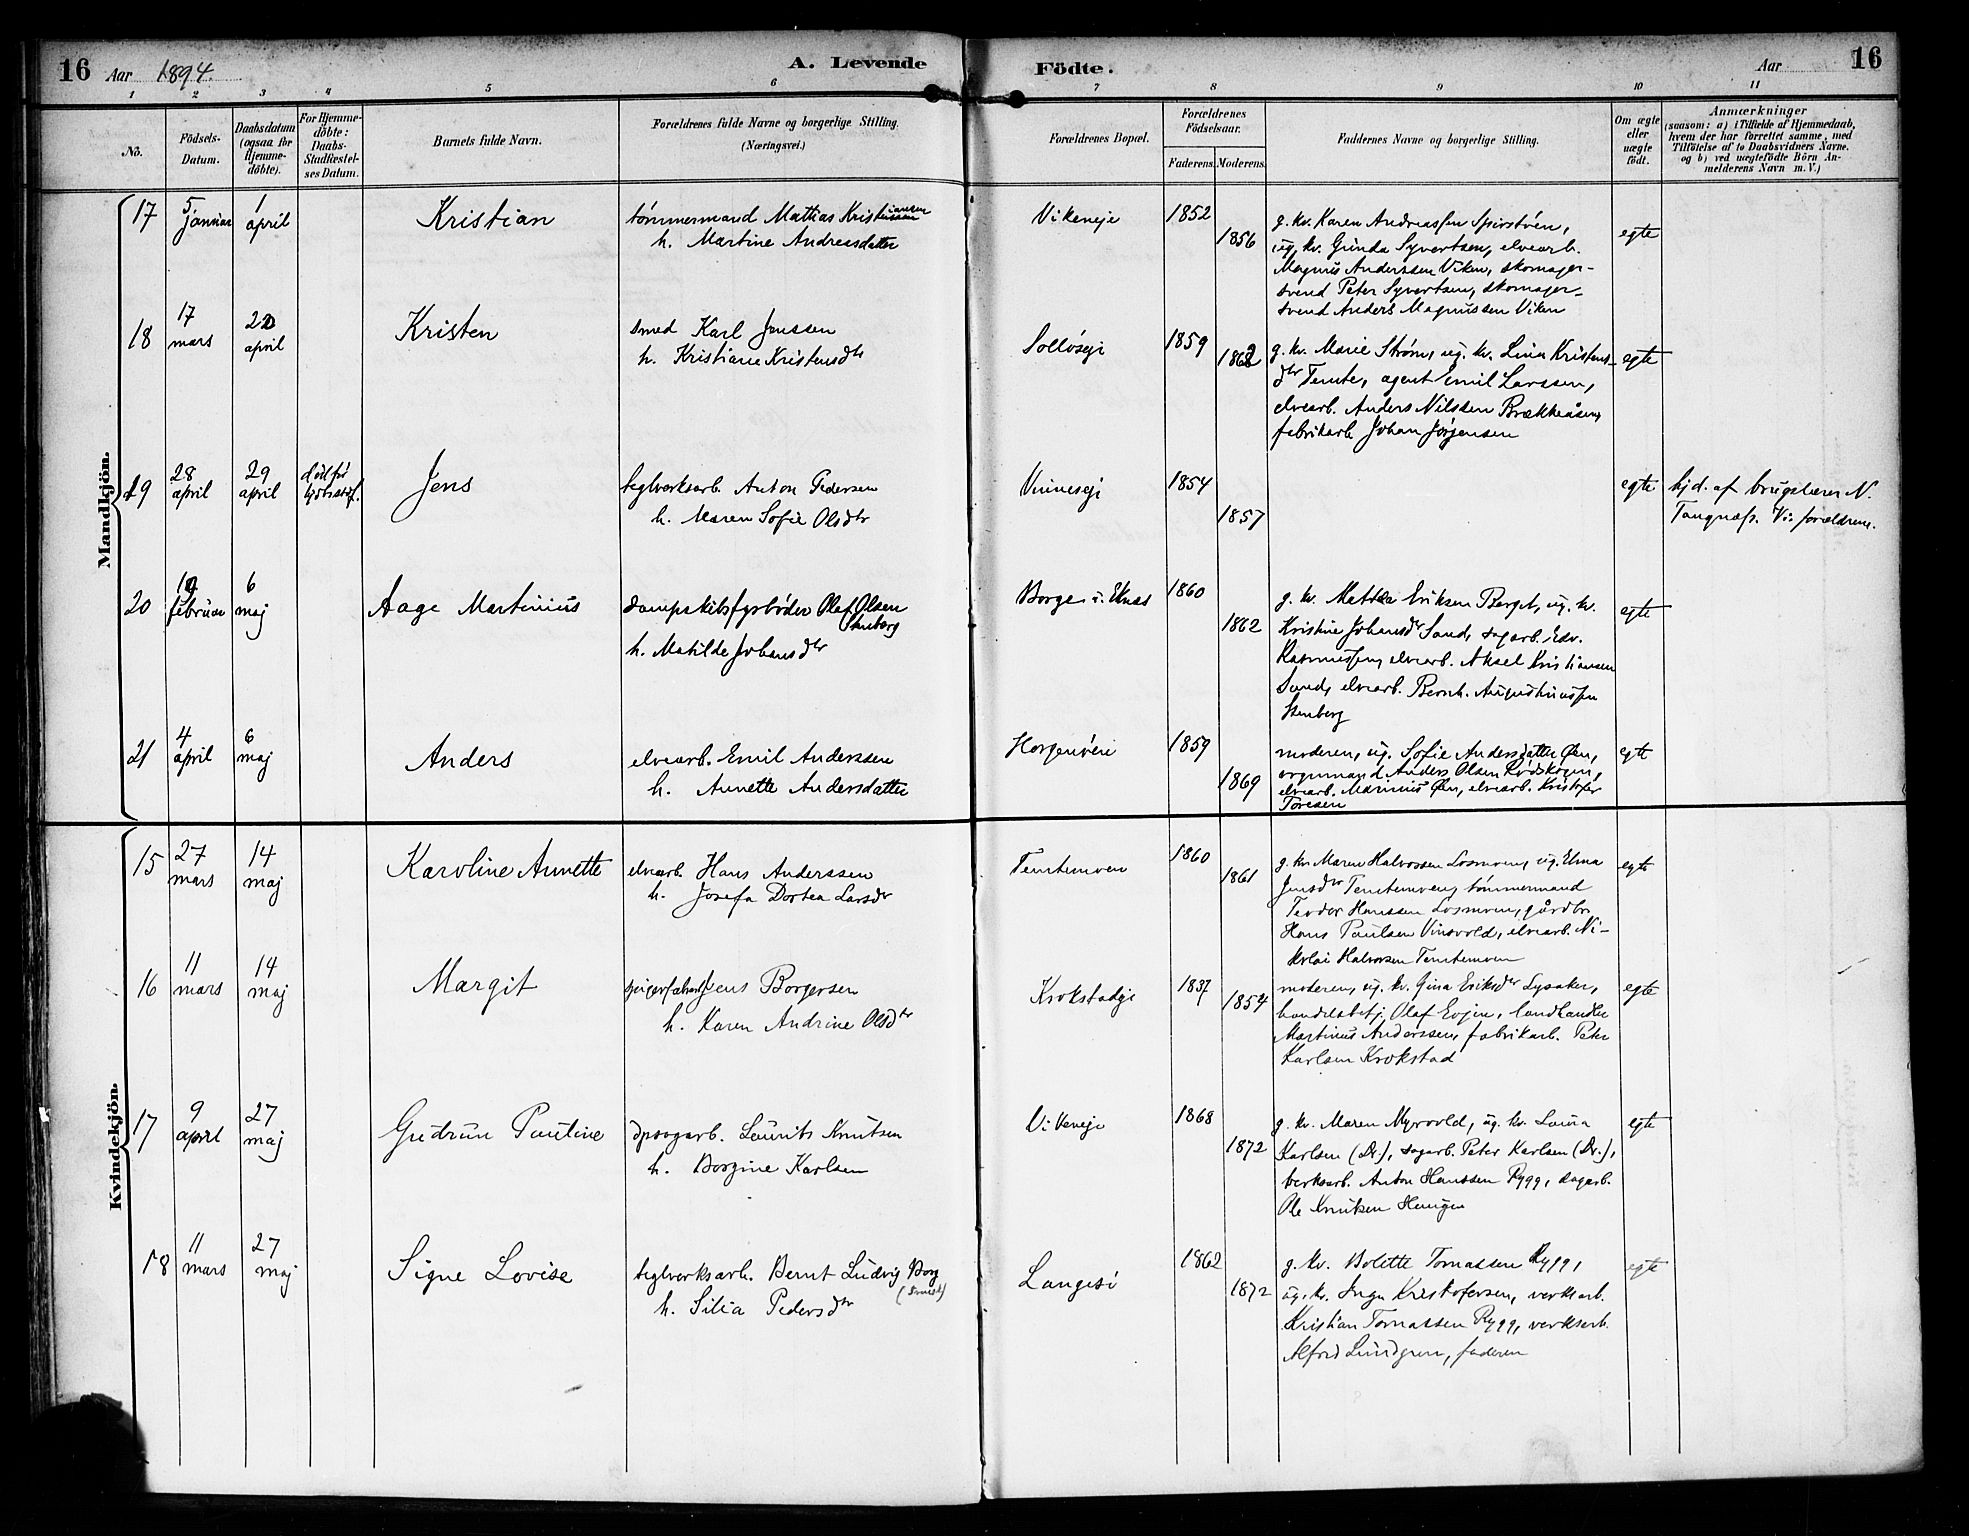 16 Aar 1894. A. Levende Födte. Aar 16
1 2 3 4 5 6 7 8 9 10 11
No.
Födsels-
Datum.
Daabsdatum
(ogsaa for
Hjemme-
döbte).
For Hjemme-
döbte:
Daabs-
Stadfæstel-
ses Datum.
Barnets fulde Navn.
Forældrenes fulde Navne og borgerlige Stilling.
(Næringsvei.)
Forældrenes Bopæl.
Forældrenes
Födselsaar.
Faderens. Moderens.
Faddernes Navne og borgerlige Stilling.
Om ægte
eller
uægte
født.
Anmærkninger
(saasom: a) i Tilfælde af Hjemmedaab,
hvem der har forrettet samme, med
Tilföielse af to Daabsvidners Navne.
og b) ved uægtefödte Börn An-
melderens Navn m. V.)
Mandkjön.
17
5 januar
1 april
Kristian
tømmermand Mattias Kristiansen
h. Martine Andreasdatter
Vikeneje
1852
1856
g. kv. Karen Andreassen
ug. kv. Gunda Syvertsen, elvearb.
Magnus Anderssen Viken, skomager-
svend Peter Syvertsen, skomager-
svend Anders Magnussen Viken
egte
18
17 mars
22 april
Kristen
smed Karl Jenssen
h. Kristiane Kristensdtr
1859
1862
g. kv. Marie Strøm, ug. kv. Lina Kristens-
dtr Temte, agent Emil Larssen,
elvearb. Anders Nilssen Brækkeåsen,
fabrikarb Johan Jørgensen
egte
19
28 april
29 april
død før
Jens
teglverksarb. Anton Pedersen
h. Maren Sofie Olsdtr
1854
1857
egte
hjd. af brugslærer N.
Tangnæss. Vi: forældrene.
20
februar
6 maj
Aage Martinius
dampskibsfyrbøder Olaf Olsen
Stenberg
h. Matilde Johansdtr
Borge i. Eknæs
1860
1862
g. kv. Mattea Eriksen Berget, ug. kv.
Kristine Johansdtr Sand, sagarb. Edv.
Rasmussen, elvearb. Aksel Kristiansen
Sand, elvearb. Bernh. Augustinussen
Stenberg
egte
21
4 april
6 maj
Anders
elvearb. Emil Anderssen
h. Annette Andersdatter
Horgenveien
1859
1869
moderen, ug. Sofie Andersdatter Øen,
vognmand Anders Olsen Rødskogen,
elvearb. Marinius Øen, elvearb. Kristofer
Toresen
egte
Kvindekjön.
15
27 mars
14 maj
Karoline Annette
elvearb. Hans Anderssen
h. Josefa Dortea Larsdtr
Temtemoen
1860
1861
g. kv. Maren Halvorsen Losmoen, ug. Elma
Jensdtr Temtemoen, tømmermand
Teodor Hanssen Losmoen, gårdbr.
Hans Paulsen Vinsvold, elvearb. Ni-
kolai Halvorsen Temtemoen
egte
16
11 mars
14 maj
Margit
spigerfabarb Jens Borgersen
h. Karen Andrine Olsdtr
Krokstadeje
1837
1854
moderen, ug. kv. Gina Eriksdtr Lysaker,
handelsbetj. Olaf Evjen, landhandler
Martinus Anderssen, fabrikarb. Peter
Karlsen Krokstad
egte
17
9 april
27 maj
Gudrun Pauline
dpsagarb. Laurits Knutsen
h. Borgine Karlsen
Vikeneje
1868
1872
g. kv. Maren Myrvold, ug. kv. Laura
Karlsen (Dr.), sagarb. Peter Karlsen (Dr.),
verksarb. Anton Hanssen Rygg, sagarb.
Ole Knutsen
egte
18
11 mars
27 maj
Signe Lovise
teglverksarb. Bernt Ludvig Borg
h. Silia Pedersdtr
1862
1872
g. kv. Bolette Tomassen Rygg,
ug. kv. Inga Kristofersen, verksarb.
Kristian Tomassen Rygg, verksarb.
Alfred Lundgren, faderen
egte